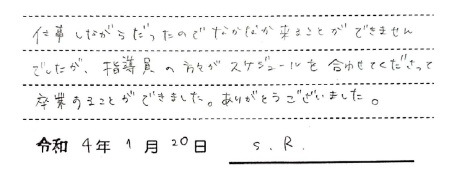 仕事しながらだったのでなかなか来ることができません
でしたが、指導員の方々がスケジュールを合わせてくださって
卒業することができました。ありがとうございました。
令和 4年 1月 20日 S.R.